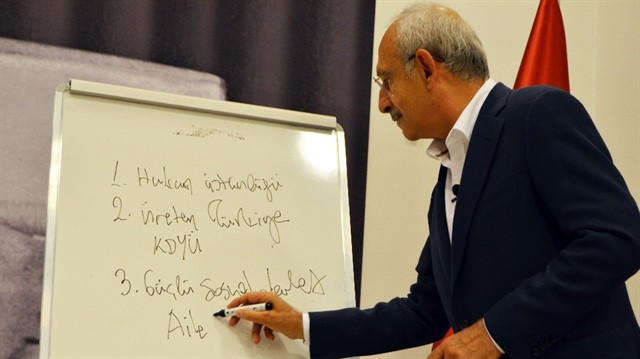 1. Hukuk üstünlüğü
2. Üreten Türkiye
KDYÜ
3. Güçlü sosyal devlet
Aile